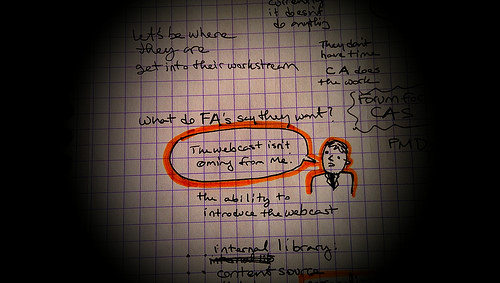 currently
it doesn't
do anything
Let's be where
they are
get into their workstream
They don't
have time
CA does
the work
Forum for
CAS
PMD
what do FA's say they want?
The webcast isn't
coming from me.
the ability to
introduce the webcast
internal library:
content source